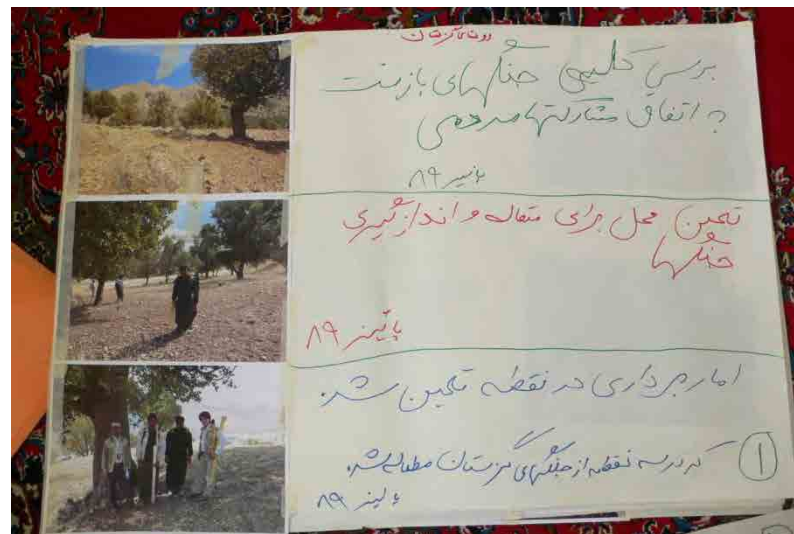 بررسی کلیهی جنگلهای بازفت
به اتفاق مشارکتهای مردمی
پاییز ۸۹
تعین محل برای متعاله و اندازگیری
جنگلها
پائیز ۸۹
امار برداری در نقطه تعین شد.
۱
که در سه نقطه از جنگلهای گزستان مطالعه شد.
پائیز ۸۹